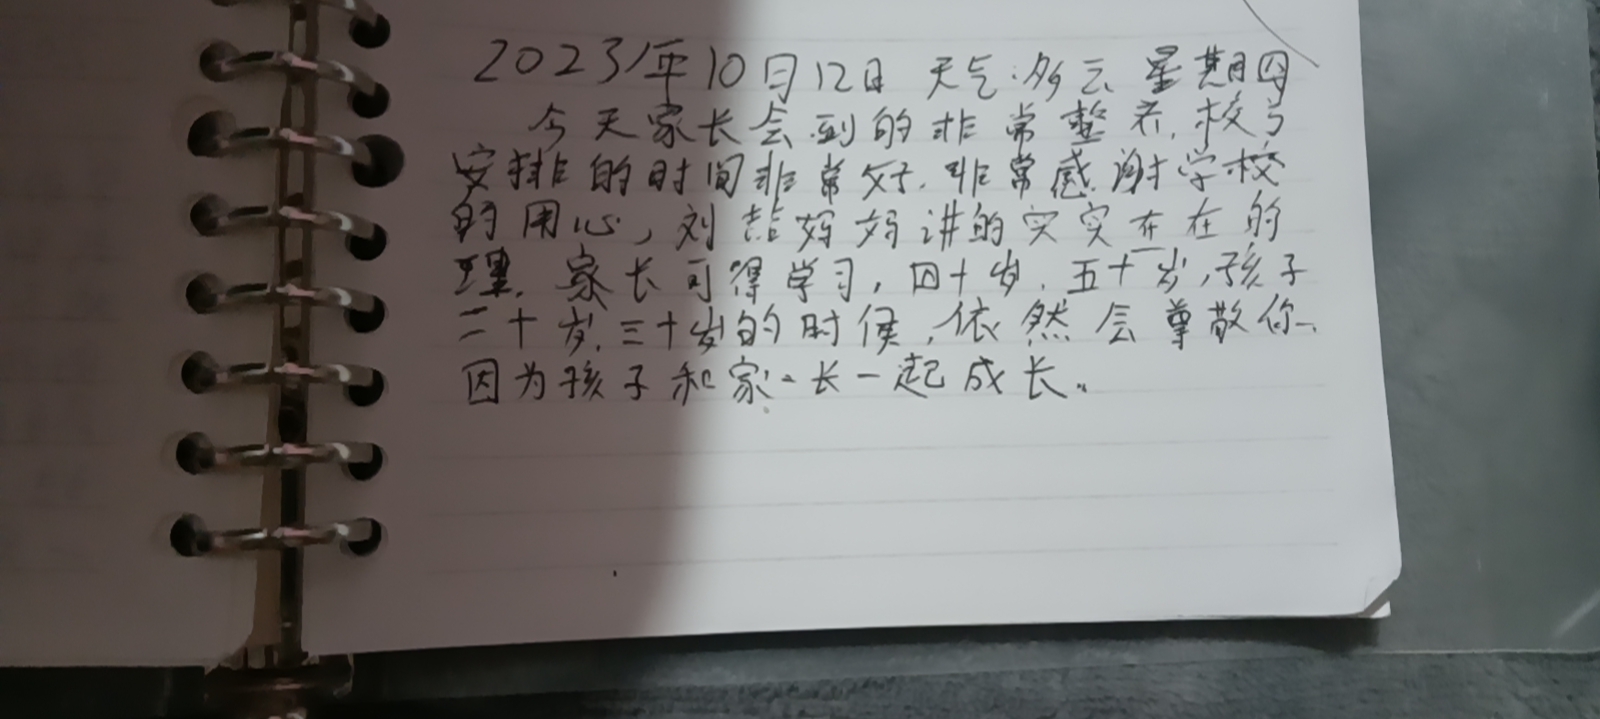 2023年10月12日 天气:多云 星期四
今天家长会到的非常整齐,校
安排的时间非常好.非常感谢学校
的用心,刘喆妈妈讲的实实在在的
理.家长可得学习,四十岁.五十岁,孩子
二十岁.三十岁的时候,依然会尊敬你.
因为孩子和家长一起成长。